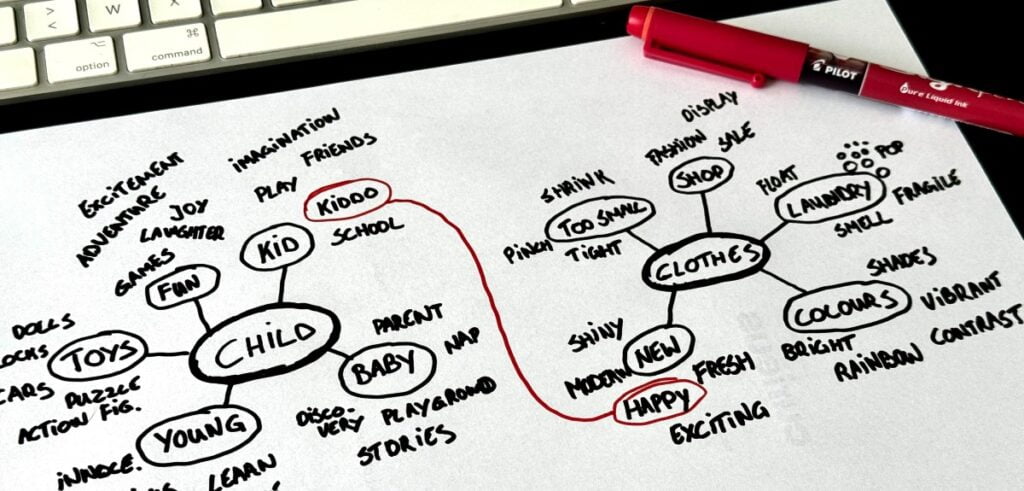 option
command
⌘
PILOT
Pure Liquid Ink
EXCITEMENT
ADVENTURE
JOY
LAUGHTER
GAMES
FUN
IMAGINATION
FRIENDS
PLAY
KIDDO
SCHOOL
KID
CHILD
DOLLS
TOYS
CARS
PUZZLE
ACTION FIG.
YOUNG
INNOCE.
LEARN
PARENT
BABY
NAP
DISCO-
VERY
PLAYGROWD
STORIES
DISPLAY
FASHION
SALE
SHOP
SHRINK
TOO SMALL
PINCH
TIGHT
CLOTHES
FLOAT
POP
LAUNDRY
FRAGILE
SMELL
SHADES
COLOURS
VIBRANT
BRIGHT
RAINBOW
CONTRAST
SHINY
NEW
MODERN
FRESH
HAPPY
EXCITING